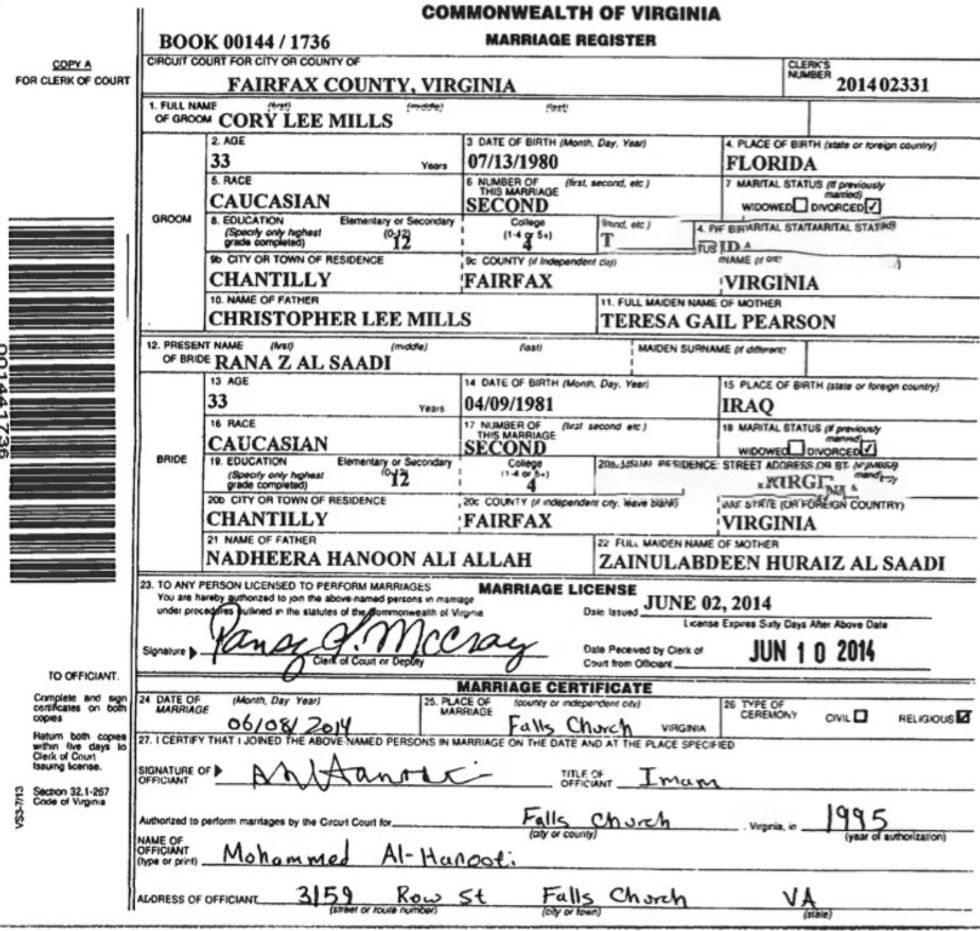 COMMONWEALTH OF VIRGINIA
BOOK 00144 / 1736
MARRIAGE REGISTER
COPY A
FOR CLERK OF COURT
CIRCUIT COURT FOR CITY OR COUNTY OF
FAIRFAX COUNTY, VIRGINIA
CLERK'S NUMBER 2014 02331
1. FULL NAME OF GROOM (first) (middle) (last)
CORY LEE MILLS
GROOM
2. AGE
33 Years
3 DATE OF BIRTH (Month, Day, Year)
07/13/1980
4. PLACE OF BIRTH (state or foreign country)
FLORIDA
5. RACE
CAUCASIAN
6 NUMBER OF THIS MARRIAGE (first, second, etc)
SECOND
7 MARITAL STATUS (If previously married)
WIDOWED DIVORCED
8. EDUCATION (Specify only highest grade completed)
Elementary or Secondary (0-12)
12
College (1-4 or 5+)
4
9b CITY OR TOWN OF RESIDENCE
CHANTILLY
9c COUNTY (if independent city)
FAIRFAX
VIRGINIA
10. NAME OF FATHER
CHRISTOPHER LEE MILLS
11. FULL MAIDEN NAME OF MOTHER
TERESA GAIL PEARSON
12. PRESENT NAME OF BRIDE (first) (middle) (last)
RANA Z AL SAADI
MAIDEN SURNAME (if different)
BRIDE
13 AGE
33 Years
14 DATE OF BIRTH (Month, Day, Year)
04/09/1981
15 PLACE OF BIRTH (state or foreign country)
IRAQ
16 RACE
CAUCASIAN
17 NUMBER OF THIS MARRIAGE (first second etc)
SECOND
18 MARITAL STATUS (If previously married)
WIDOWED DIVORCED
19. EDUCATION (Specify only highest grade completed)
Elementary or Secondary (0-12)
12
College (1-4 or 5+)
4
RESIDENCE: STREET ADDRESS OR ST.
20b CITY OR TOWN OF RESIDENCE
CHANTILLY
20c COUNTY (if independent city, leave blank)
FAIRFAX
STATE (OR FOREIGN COUNTRY)
VIRGINIA
21 NAME OF FATHER
NADHEERA HANOON ALI ALLAH
22 FULL MAIDEN NAME OF MOTHER
ZAINULABDEEN HURAIZ AL SAADI
00144 1736
23. TO ANY PERSON LICENSED TO PERFORM MARRIAGES
MARRIAGE LICENSE
You are hereby authorized to join the above-named persons in marriage
under procedures outlined in the statutes of the Commonwealth of Virginia
Date Issued JUNE 02, 2014
License Expires Sixty Days After Above Date
Signature
Clerk of Court or Deputy
Date Received by Clerk of Court from Officiant JUN 10 2014
TO OFFICIANT.
Complete and sign
certificates on both
copies
Return both copies
within five days to
Clerk of Court
issuing license.
Section 32.1-267
Code of Virginia
VS3-7/13
MARRIAGE CERTIFICATE
24 DATE OF MARRIAGE (Month, Day Year)
06/08/2014
25. PLACE OF MARRIAGE (county or independent city)
Falls Church VIRGINIA
26 TYPE OF CEREMONY CIVIL RELIGIOUS
27. I CERTIFY THAT I JOINED THE ABOVE-NAMED PERSONS IN MARRIAGE ON THE DATE AND AT THE PLACE SPECIFIED
SIGNATURE OF OFFICIANT
TITLE OF OFFICIANT Imam
Authorized to perform marriages by the Circuit Court for Falls Church, Virginia, in 1995
(city or county) (year of authorization)
NAME OF OFFICIANT (type or print) Mohammed Al-Hanooti
ADDRESS OF OFFICIANT 3159 Row St Falls Church VA
(street or route number) (city or town) (state)